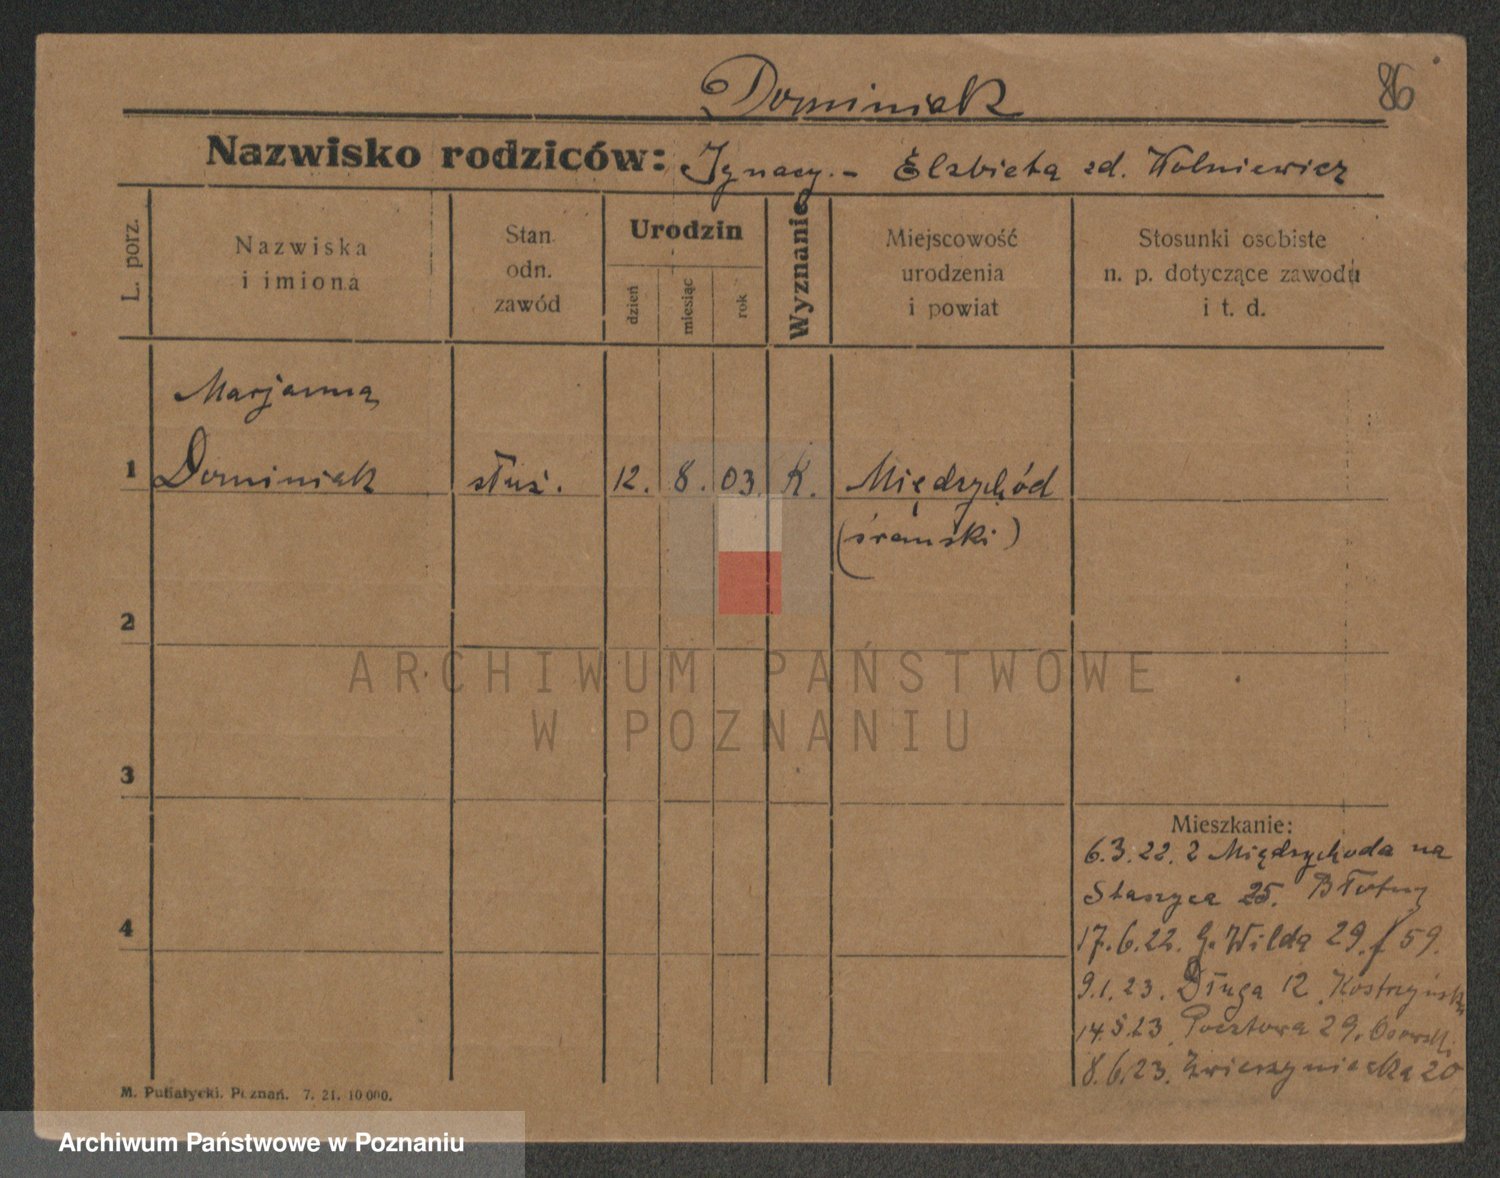 86
Dominiak
Nazwisko rodziców: Ignacy. - Elżbieta zd. Wolniewicz
L. porz.
Nazwiska
i imiona
Stan.
odn.
zawód
Urodzin
dzień
miesiąc
rok
Wyznanie
Miejscowość
urodzenia
i powiat
Stosunki osobiste
n. p. dotyczące zawodu
i t. d.
Marjanna
1 Dominiak służ. 12. 8. 03. K. Międzychód
(śremski)
2
ARCHIWUM PAŃSTWOWE
W POZNANIU
3
Mieszkanie:
6.3.22. z Międzychoda na
Staszyca 25.
4
17.6.22. G. Wilda 29. / 59.
9.1.23. Długa 12
14.5.23 Pocztowa 29.
8.6.23. Zwierzyniecka 20
M. Putiatycki. Poznań. 7. 21. 10 000.
Archiwum Państwowe w Poznaniu